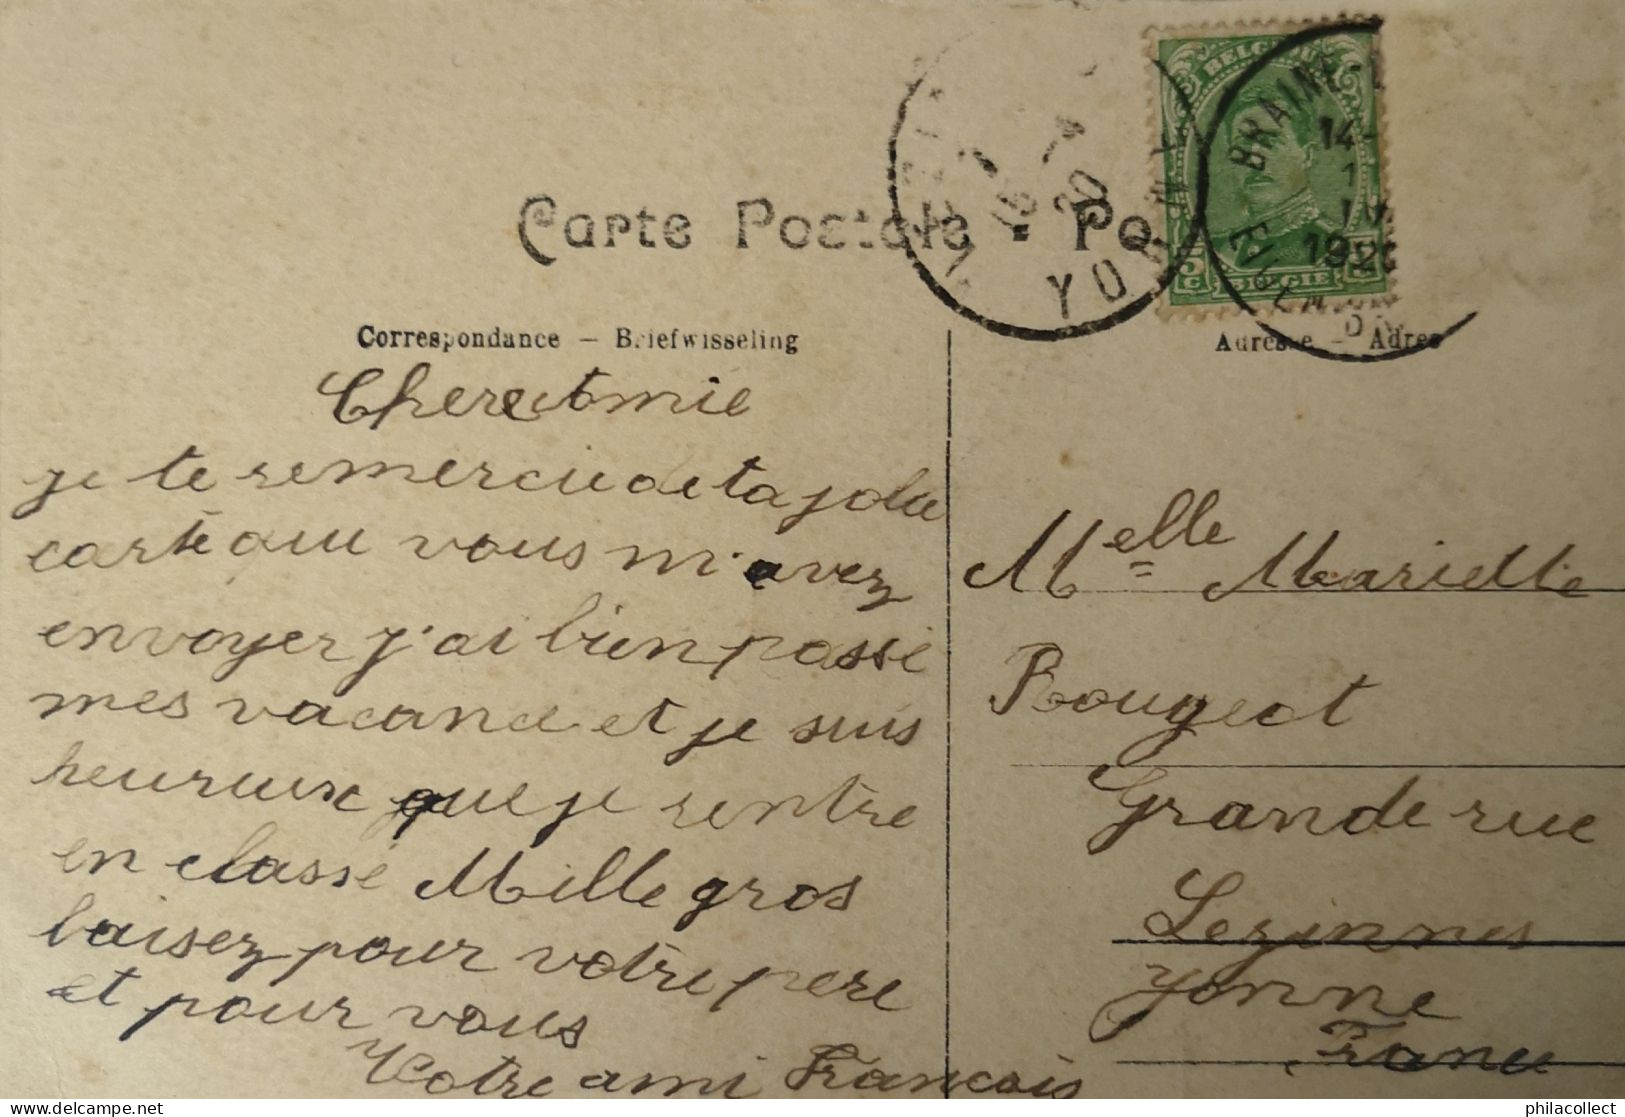 Carte Postale - Po
Correspondance – Briefwisseling
Adresse – Adres
BELGIQUE
5c BELGIE 5c
BRAINE-
14-
1920
EIGEN
YONNE
20
Chere Amie
je te remercie de ta jolie
carte que vous m'avez
envoyer j'ai bien passé
mes vacance et je suis
heureux que je rentre
en classe Mille gros
baisez pour votre pere
et pour vous
Votre ami Francois
Melle Marielle
Rougeot
Grande rue
Lezinnes
Yonne
France
philacollect
www.delcampe.net